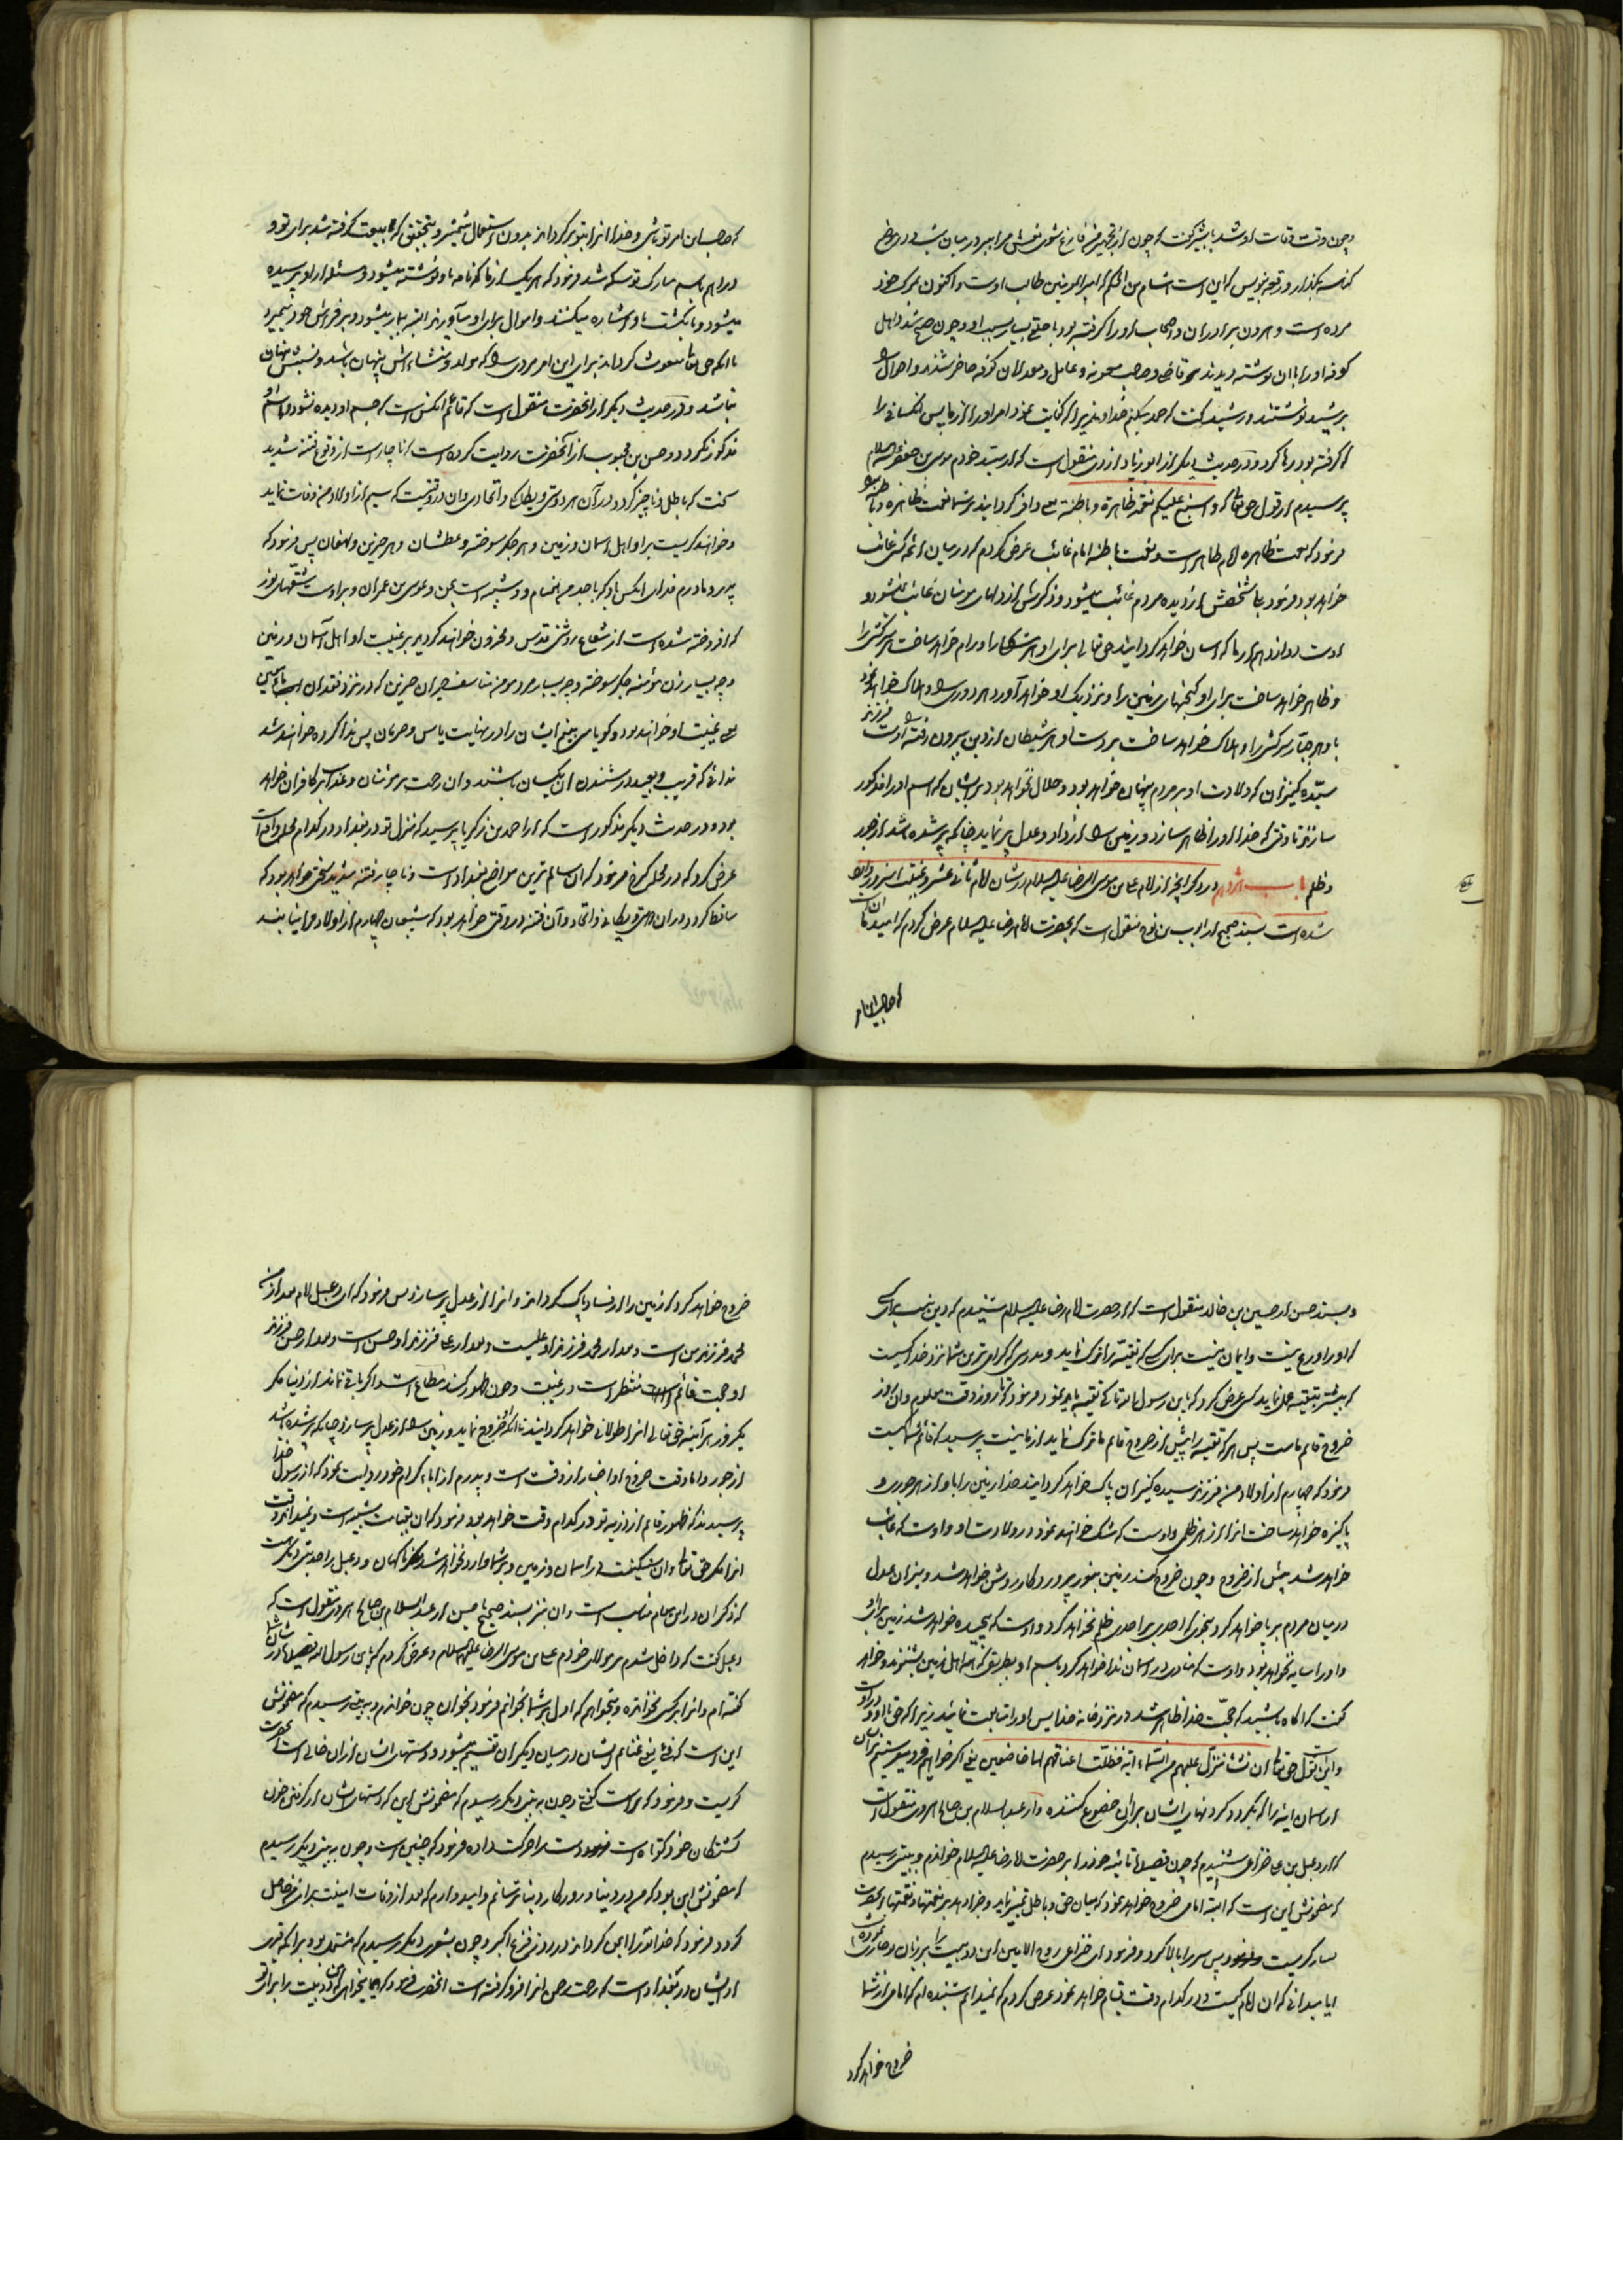 و چون وقت وفات او شد با بشیر گفت که چون از تجهیز من فارغ شوی نعش مرا ببر در میان شب در موضع
کناسه بگذار و رقعه بنویس که این است هشام بن الحکم که امیرالمؤمنین طالب اوست و اکنون بمرک خود
مرده است و هرون برادران و اصحاب او را گرفته بود با خلق بسیار بسبب او و چون صبح شد و اهل
کوفه او را با آن نوشته دیدند و قاضی و صاحب معونه و عامل و معدلان کوفه حاضر شدند و احوال را
برشید نوشتند و رشید گفت که حمد میکنم خدا را که کفایت نمود امر او را از ما پس کسانی را
که گرفته بود رها کرد و در حدیث دیگر از ابو زیاد ازدی منقول است که از سید خودم موسی بن جعفر علیه السلام
پرسیدم از قول حق تعالی که و اسبغ علیکم نعمه ظاهرة و باطنة یعنی وافر گردانید بر شما نعمت ظاهره و باطنه را
فرمود که نعمت ظاهره امام ظاهر است و نعمت باطنه امام غائب عرض کردم که در میان ائمه کسی غائب
خواهد بود فرمود بلی شخصش از دیده مردم غائب میشود و ذکرش از دلهای مؤمنان غائب نمیشود و
اوست دوازدهم از ما که آسان خواهد گردانید حق تعالی برای او هر مشکل را و رام خواهد ساخت هر سرکش را
و ظاهر خواهد ساخت برای او گنجهای زمین را و نزدیک او خواهد آورد هر دوری را و هلاک خواهد نمود
باو هر جبار سرکش را و هلاک خواهد ساخت بر دست او هر شیطان از دین بیرون رفته را اوست فرزند
سیده کنیزان که ولادت او بر مردم پنهان خواهد بود و حلال نخواهد بود بر ایشان که اسم او را مذکور
سازند تا وقتی که خدا او را ظاهر سازد و زمین را از داد و عدل پر نماید چنانکه پر شده باشد از جور
و ظلم باب در ذکر آنچه از امام علی بن موسی الرضا علیه السلام در شان امام ثانی عشر و غیبت آنسرور وارد
شده است بسند صحیح از ایوب بن نوح منقول است که بحضرت امام رضا علیه السلام عرض کردم که امید ما آن است
که صاحب این امر
که صاحب این امر تو باشی و خدا آنرا بتو برگرداند بدون استعمال شمشیر و بتحقیق که بیعت گرفته شد برای تو و
دراهم باسم مبارک تو سکه شد فرمود که هر یک از ما که نامه باو نوشته میشود و مسئله از او پرسیده
میشود و بانگشت باو اشاره میکنند و اموال برای او میآورند البته بیمار میشود و بر فراش خود میمیرد
تا آنکه حق تعالی مبعوث گرداند برای این امر مردی را که مولد و منشاءش پنهان باشد و نسبش پنهان
نباشد و در حدیث دیگر از آنحضرت منقول است که قائم آنکس است که جسم او دیده نشود و اسم او
مذکور نگردد و حسن بن محبوب از آنحضرت روایت کرده است که ناچار است از وقوع فتنه شدید
سخت که باطل و ناچیز گردد در آن هر دوستی و یگانگی و اتحادی و آن در وقتیست که سیم از اولاد من وفات نماید
و خواهند گریست بر او اهل آسمان و زمین و هر جگر سوخته و عطشان و هر حزین و لهفان پس فرمود که
پدر و مادرم فدای آنکس باد که با جدم همنام و شبیه است بمن و موسی بن عمران و بر اوست شقهای نور
که افروخته شده است از شعاع روشنی قدس و محزون خواهند گردید بر غیبت او اهل آسمان و زمین
و چه بسیار زن مؤمنه جگر سوخته و چه بسیار مرد مؤمن متأسف حیران حزین که در نزد فقدان ماء معین
یعنی غیبت او خواهند بود و گویا می بینم ایشان را در نهایت یاس و حرمان پس ندا کرده خواهند شد
ندائی که قریب و بعید در شنیدن آن یکسان باشند و آن رحمت بر مؤمنان و عذاب بر کافران خواهد
بود و در حدیث دیگر مذکور است که از احمد بن زکریا پرسید که منزل تو در بغداد در کدام محل واقع است
عرض کرد که در محل کرخ فرمود که آن سالم ترین مواضع بغداد است و ناچار فتنه شدید سختی خواهد بود که
ساقط گردد در آن هر دوستی و یگانگی و اتحاد و آن فتنه در وقتی خواهد بود که شیعیان چهارم از اولاد مرا نیابند
و بسند حسن از حسین بن خالد منقول است که از حضرت امام رضا علیه السلام شنیدم که دین نیست برای کسی
که او را ورع نیست و ایمان نیست برای کسی که تقیه را ترک نماید و بدرستی که گرامی ترین شما نزد خدا کسیست
که بیشتر بتقیه عمل نماید کسی عرض کرد که یابن رسول الله تا کی تقیه باید نمود فرمود تا روز وقت معلوم و آن روز
خروج قائم ماست پس هر که تقیه را پیش از خروج قائم ما ترک نماید از ما نیست پرسید که قائم شما کیست
فرمود که چهارم از اولاد من فرزند سیده کنیزان پاک خواهد گردانید خدا زمین را باو از هر جوری و
پاکیزه خواهد ساخت آنرا از هر ظلمی و اوست که شک خواهند نمود در ولادت او و اوست که غائب
خواهد شد پیش از خروج و چون خروج کند زمین بنور پروردگار روشن خواهد شد و میزان عدل
در میان مردم برپا خواهد کرد بنحوی که احدی بر احدی ظلم نخواهد کرد و اوست که پیچیده خواهد شد زمین برای او
و او را سایه نخواهد بود و اوست که منادی در آسمان ندا خواهد کرد باسم او بطریقی که همه اهل زمین بشنوند و خواهد
گفت که آگاه باشید که حجت خدا ظاهر شد در نزد خانه خدا پس او را متابعت نمائید زیرا که حق با او و در اوست
و اینست قول حق تعالی ان نشأ ننزل علیهم من السماء آیة فظلت اعناقهم لها خاضعین یعنی اگر خواهیم فرو میفرستیم بر ایشان
از آسمان آیه را که بگردد گردنهای ایشان برای آن خضوع کننده و از عبدالسلام بن صالح هروی منقول است
که از دعبل بن علی خزاعی شنیدم که چون قصیده تائیه خود را بر حضرت امام رضا علیه السلام خواندم و به بیتی رسیدم
که مضمونش این است که البته امامی خروج خواهد نمود که میان حق و باطل تمیز نماید و جزا دهد بر نعمتها و نقمتها آنحضرت
بسیار گریست پس سر را بالا کرد و فرمود ای خزاعی روح الامین این دو بیت را بر زبان تو جاری نموده است
آیا میدانی که آن امام کیست و در کدام وقت قیام خواهد نمود عرض کردم که نمیدانم شنیده ام که امامی از شما
خروج خواهد کرد
خروج خواهد کرد که زمین را از فساد پاک گرداند و آنرا از عدل پر سازد پس فرمود که ای دعبل امام بعد از من
محمد فرزند من است و بعد از محمد فرزند او علیست و بعد از علی فرزند او حسن است و بعد از حسن فرزند
او حجت قائم است منتظر است در غیبت و چون ظهور کند مطاع است و اگر باقی نماند از دنیا مگر
یکروز هر آینه حق تعالی آنرا طولانی خواهد گردانید تا آنکه خروج نماید و زمین را از عدل پر سازد چنانکه پر شده باشد
از جور و اما وقت خروج او اخبار از وقت است و پدرم از آباء کرام خود روایت نمود که از رسول خدا
پرسیدند که ظهور قائم از ذریه تو در کدام وقت خواهد بود فرمود که آن بقیامت شبیه است و نمیداند وقت
آنرا مگر حق تعالی و آن سنگینست در آسمان و زمین و بر شما وارد نخواهد شد مگر ناگهان و دعبل را حدیثی دیگر هست
که ذکر آن در این مقام مناسب است و آن نیز بسند صحیح یا حسن از عبدالسلام بن صالح هروی منقول است که
دعبل گفت که داخل شدم بر مولای خودم علی بن موسی الرضا علیه السلام و عرض کردم که یابن رسول الله قصیده در شان شما
گفته ام و آنرا بر کسی نخوانده و میخواهم که اول بر شما بخوانم فرمود بخوان چون خواندم و به بیتی رسیدم که مضمونش
این است که فیء یعنی غنایم ایشان در میان دیگران تقسیم میشود و دستهای ایشان از آن خالی است آنحضرت
گریست و فرمود که راست گفتی و چون به بیتی دیگر رسیدم که مضمونش این که دستهای ایشان از گرفتن خون
کشتگان خود کوتاه است دست را حرکت داده فرمود که چنین است و چون به بیتی دیگر رسیدم
که مضمونش این بود که من در دنیا و روزگار دنیا ترسانم و امیدوارم که بعد از وفات امنیت برای من حاصل
گردد فرمود که خدا تو را ایمن گرداند در روز فزع اکبر و چون بشعری دیگر رسیدم که مشتمل بود بر آنکه قبری
از ایشان در بغداد است که رحمت رحمن آنرا فرو گرفته است آنحضرت فرمود که آیا میخواهی که من دو بیت را برای تو